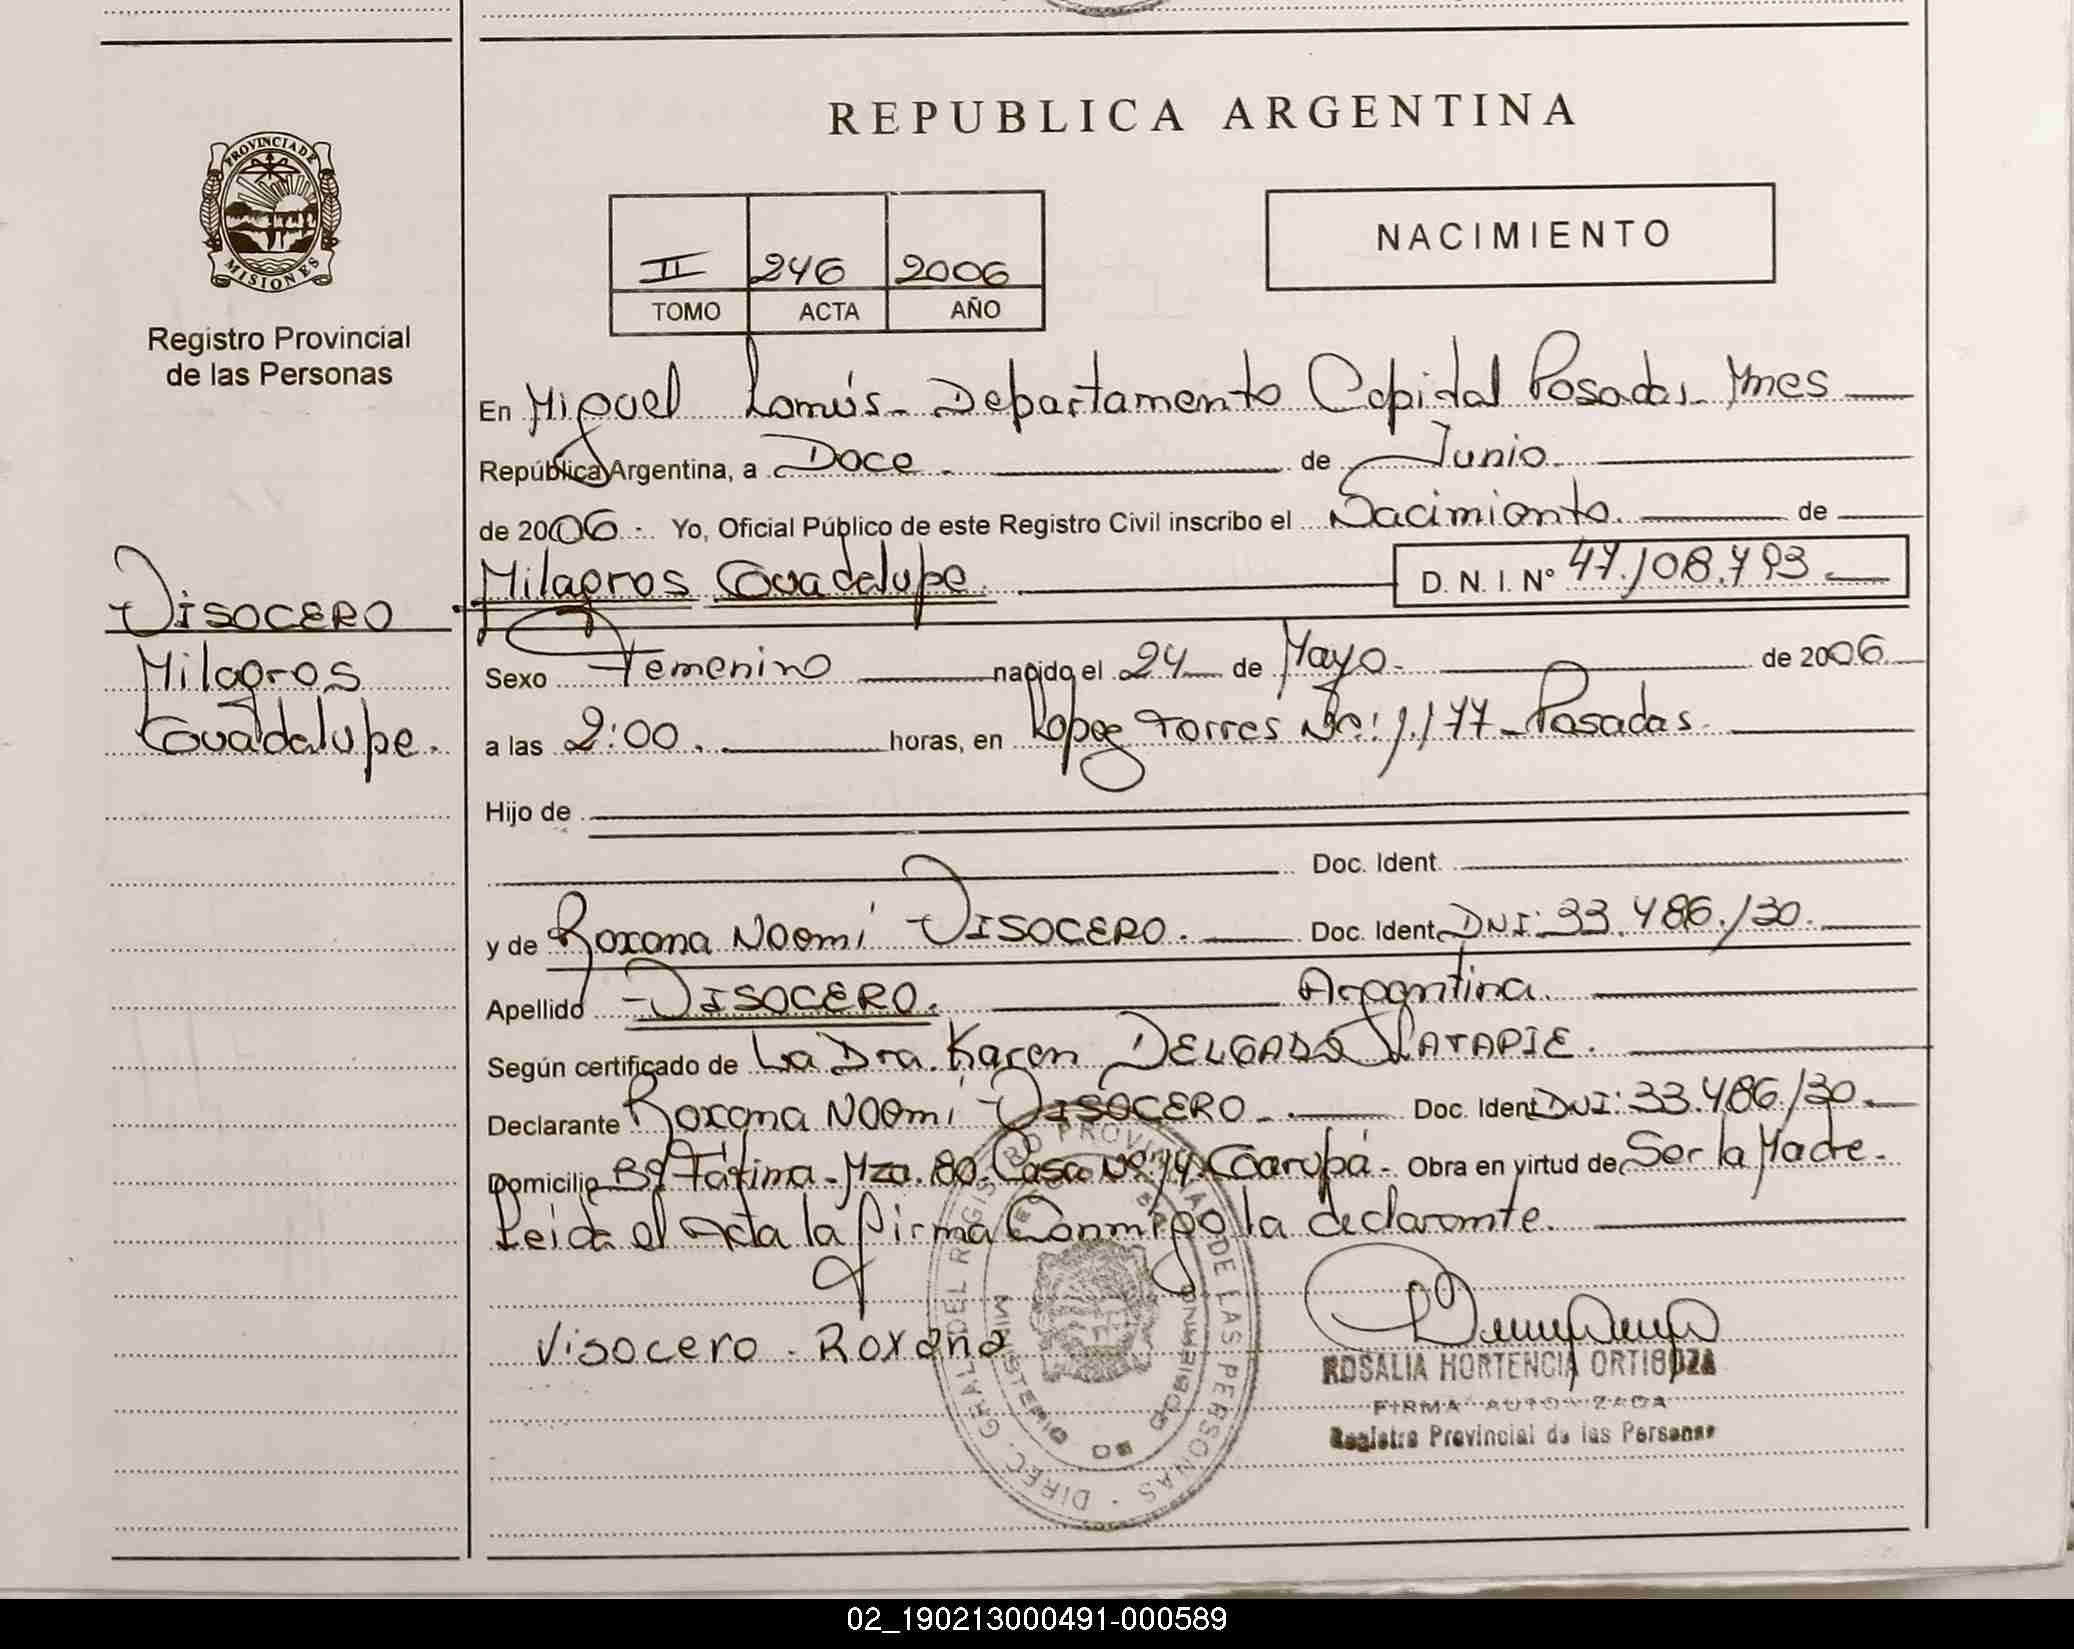 REPUBLICA ARGENTINA
PROVINCIA DE
MISIONES
Registro Provincial
de las Personas
NACIMIENTO
II 246 2006
TOMO ACTA AÑO
En Miguel Lanús - Departamento Capital Posadas - Mnes
República Argentina, a Doce. de Junio.
de 2006. Yo, Oficial Público de este Registro Civil inscribo el Nacimiento. de
Milagros Guadalupe. D. N. I. N° 47.108.793.
VISOCERO
Milagros
Guadalupe.
Sexo Femenino nacido el 24 de Mayo. de 2006
a las 2:00. horas, en Lopez Torres No: 1.177 - Posadas.
Hijo de
Doc. Ident.
y de Roxana Noemí VISOCERO. Doc. Ident. DNI: 33.486.130.
Apellido VISOCERO. Argentina.
Según certificado de La Dra. Karen DELGADO LATAPIE.
Declarante Roxana Noemí VISOCERO. Doc. Ident. DNI: 33.486.130.
Domicilio Bº Fátima - Mza. 80. Casa Nº: 14. Garupá. Obra en virtud de Ser la Madre.
Leida el Acta la firma Conmigo la declarante.
Visocero. Roxana
ROSALIA HORTENCIA ORTIGOZA
FIRMA AUTORIZADA
Registro Provincial de las Personas
DIREC. GRAL. DEL REGISTRO PROVINCIAL DE LAS PERSONAS
MINISTERIO DE GOBIERNO
02_190213000491-000589